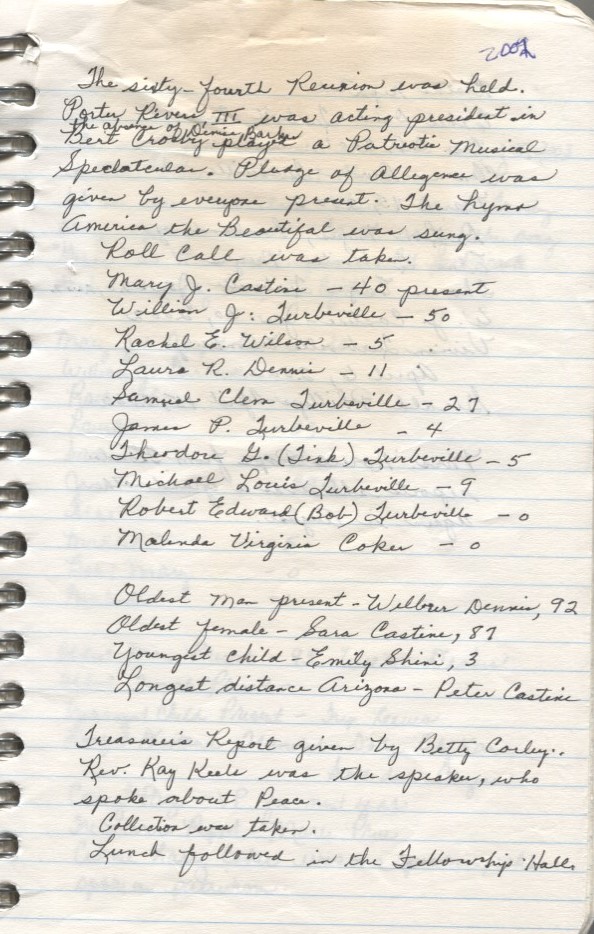 2002
The sixty-fourth Reunion was held.
Porter Rivers III was acting president in
the absence of Dennis Barker
Bert Crosby played a Patriotic Musical
Spectatcular. Pledge of Allegence was
given by everyone present. The hymn
America the Beautiful was sung.
Roll Call was taken.
Mary J. Castine - 40 present
William J. Turbeville - 50
Rachel E. Wilson - 5
Laura R. Dennis - 11
Samuel Clem Turbeville - 27
James P. Turbeville - 4
Theodore G. (Tink) Turbeville - 5
Michael Louis Turbeville - 9
Robert Edward (Bob) Turbeville - 0
Malinda Virginia Coker - 0
Oldest Man present - Wilbur Dennis, 92
Oldest female - Sara Castine, 87
Youngest child - Emily Shini, 3
Longest distance Arizona - Peter Castine
Treasurer's Report given by Betty Corley.
Rev. Kay Keele was the speaker, who
spoke about Peace.
Collection was taken.
Lunch followed in the Fellowship Hall.